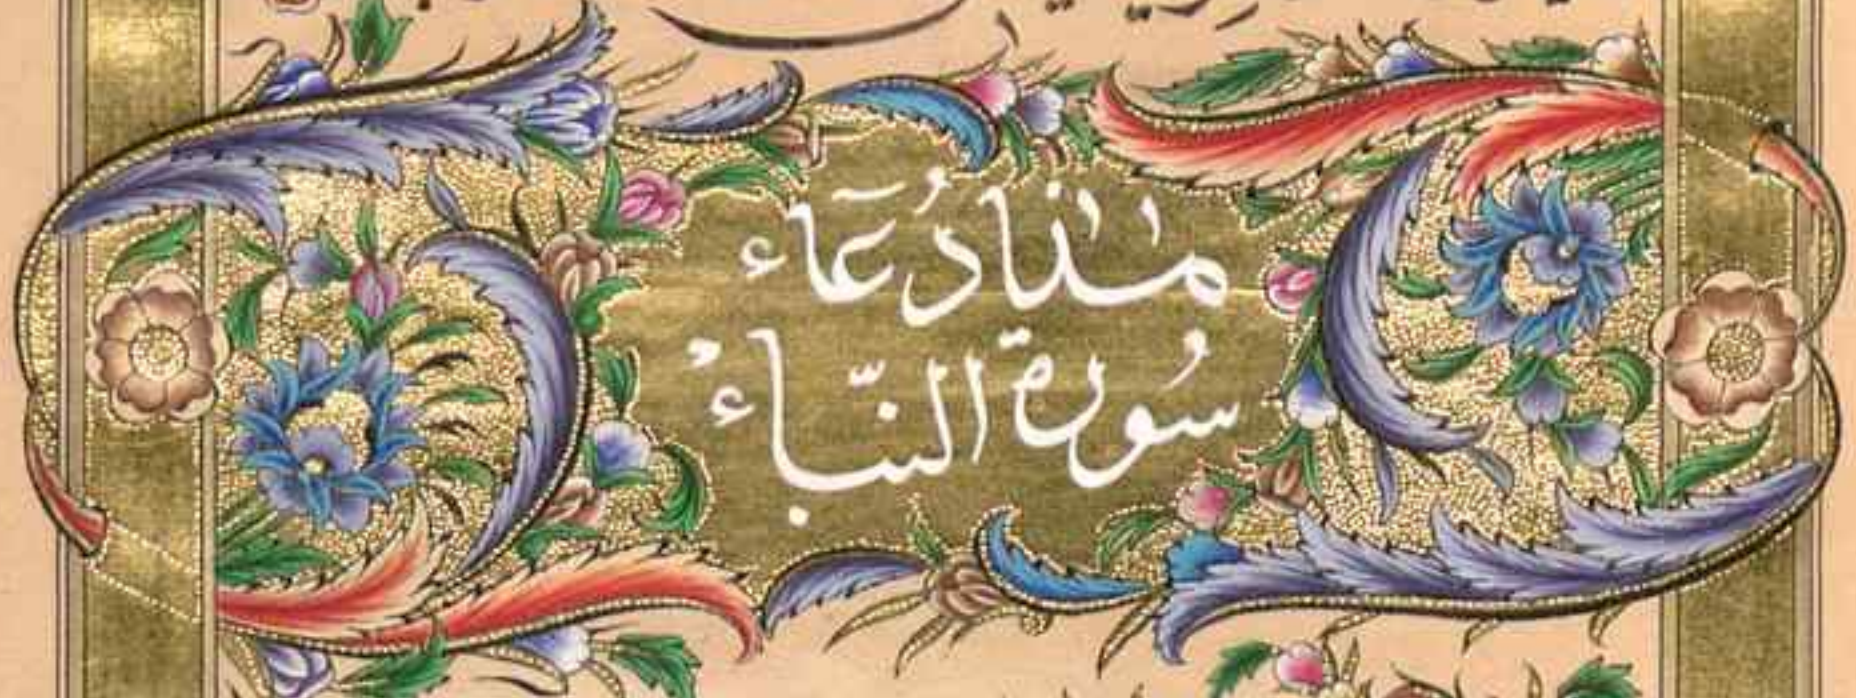 هٰذا دُعَاء
سُورة النّباءُ